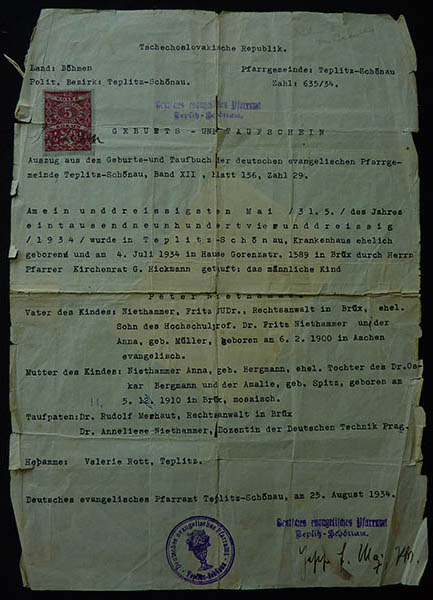 Tschechoslovakische Republik.
Land: Böhmen
Pfarrgemeinde: Teplitz-Schönau
Polit. Bezirk: Teplitz-Schönau.
Zahl: 635/34.
5
Deutsches evangelisches Pfarramt
Teplitz-Schönau.
GEBURTS - UND TAUFSCHEIN
Auszug aus dem Geburts-und Taufbuch der deutschen evangelischen Pfarrge-
meinde Teplitz-Schönau, Band XII , Blatt 156, Zahl 29.
Am ein und dreissigsten Mai /31.5./ des Jahres
eintausendneunhundertvierunddreissig
/1934/ wurde in Teplitz-Schönau, Krankenhaus ehelich
geboren und am 4. Juli 1934 im Hause Gorenzstr. 1589 in Brüx durch Herrn
Pfarrer Kirchenrat G. Hickmann getauft: das männliche Kind
Peter Niethammer
Vater des Kindes: Niethammer, Fritz JUDr., Rechtsanwalt in Brüx, ehel.
Sohn des Hochschulprof. Dr. Fritz Niethammer und der
Anna, geb. Müller, geboren am 6. 2. 1900 in Aachen
evangelisch.
Mutter des Kindes: Niethammer Anna, geb. Bergmann, ehel. Tochter des Dr.Os-
kar Bergmann und der Amalie, geb. Spitz, geboren am
5. 12. 1910 in Brüx, mosaisch.
11.
Taufpaten: Dr. Rudolf Merhaut, Rechtsanwalt in Brüx
Dr. Anneliese Niethammer, Dozentin der Deutschen Technik Prag.
Hebamme: Valerie Rott, Teplitz.
Deutsches evangelisches Pfarramt Teplitz-Schönau, am 25. August 1934.
Deutsches evangelisches Pfarramt
Teplitz-Schönau.
Deutsches evangelisches Pfarramt
Teplitz-Schönau